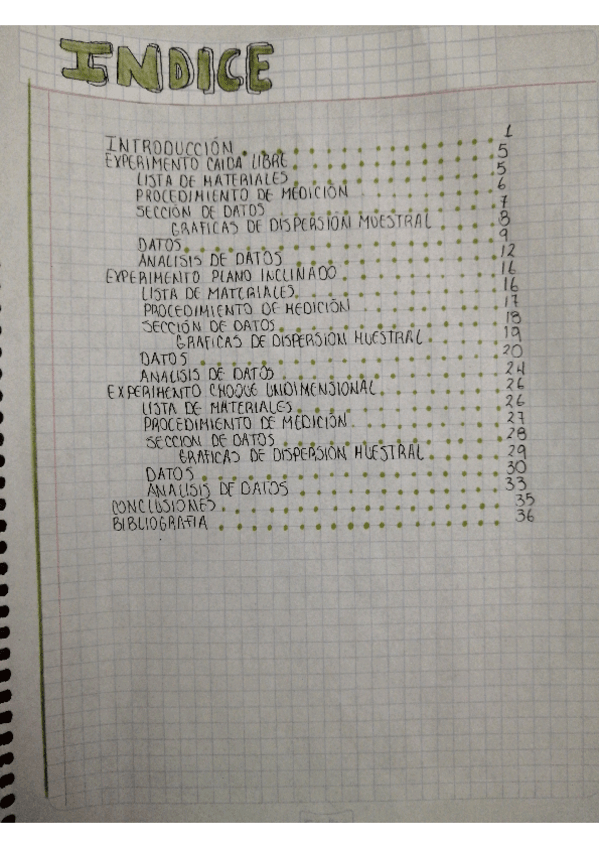 INDICE
INTRODUCCIÓN 1
EXPERIMENTO CAIDA LIBRE 5
LISTA DE MATERIALES 5
PROCEDIMIENTO DE MEDICIÓN 6
SECCIÓN DE DATOS 7
GRAFICAS DE DISPERSION MUESTRAL 8
DATOS 9
ANALISIS DE DATOS 12
EXPERIMENTO PLANO INCLINADO 16
LISTA DE MATERIALES 16
PROCEDIMIENTO DE MEDICIÓN 17
SECCIÓN DE DATOS 18
GRAFICAS DE DISPERSION MUESTRAL 19
DATOS 20
ANALISIS DE DATOS 24
EXPERIMENTO CHOQUE UNIDIMENSIONAL 26
LISTA DE MATERIALES 26
PROCEDIMIENTO DE MEDICIÓN 27
SECCION DE DATOS 28
GRAFICAS DE DISPERSION MUESTRAL 29
DATOS 30
ANALISIS DE DATOS 33
CONCLUSIONES 35
BIBLIOGRAFIA 36